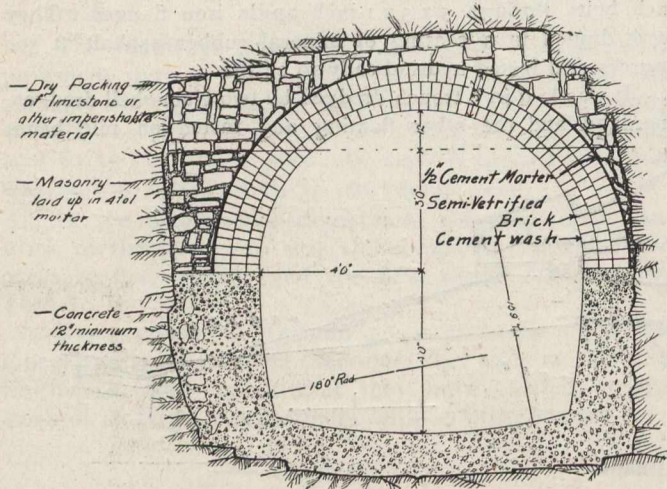 —Dry Packing
of limestone or
other imperishable
material
—Masonry
laid up in 4 to 1
mortar
—Concrete
12" minimum
thickness
½" Cement Morter
Semi-Vetrified
Brick
Cement wash
3'0"
4'0"
18'0" Rad.